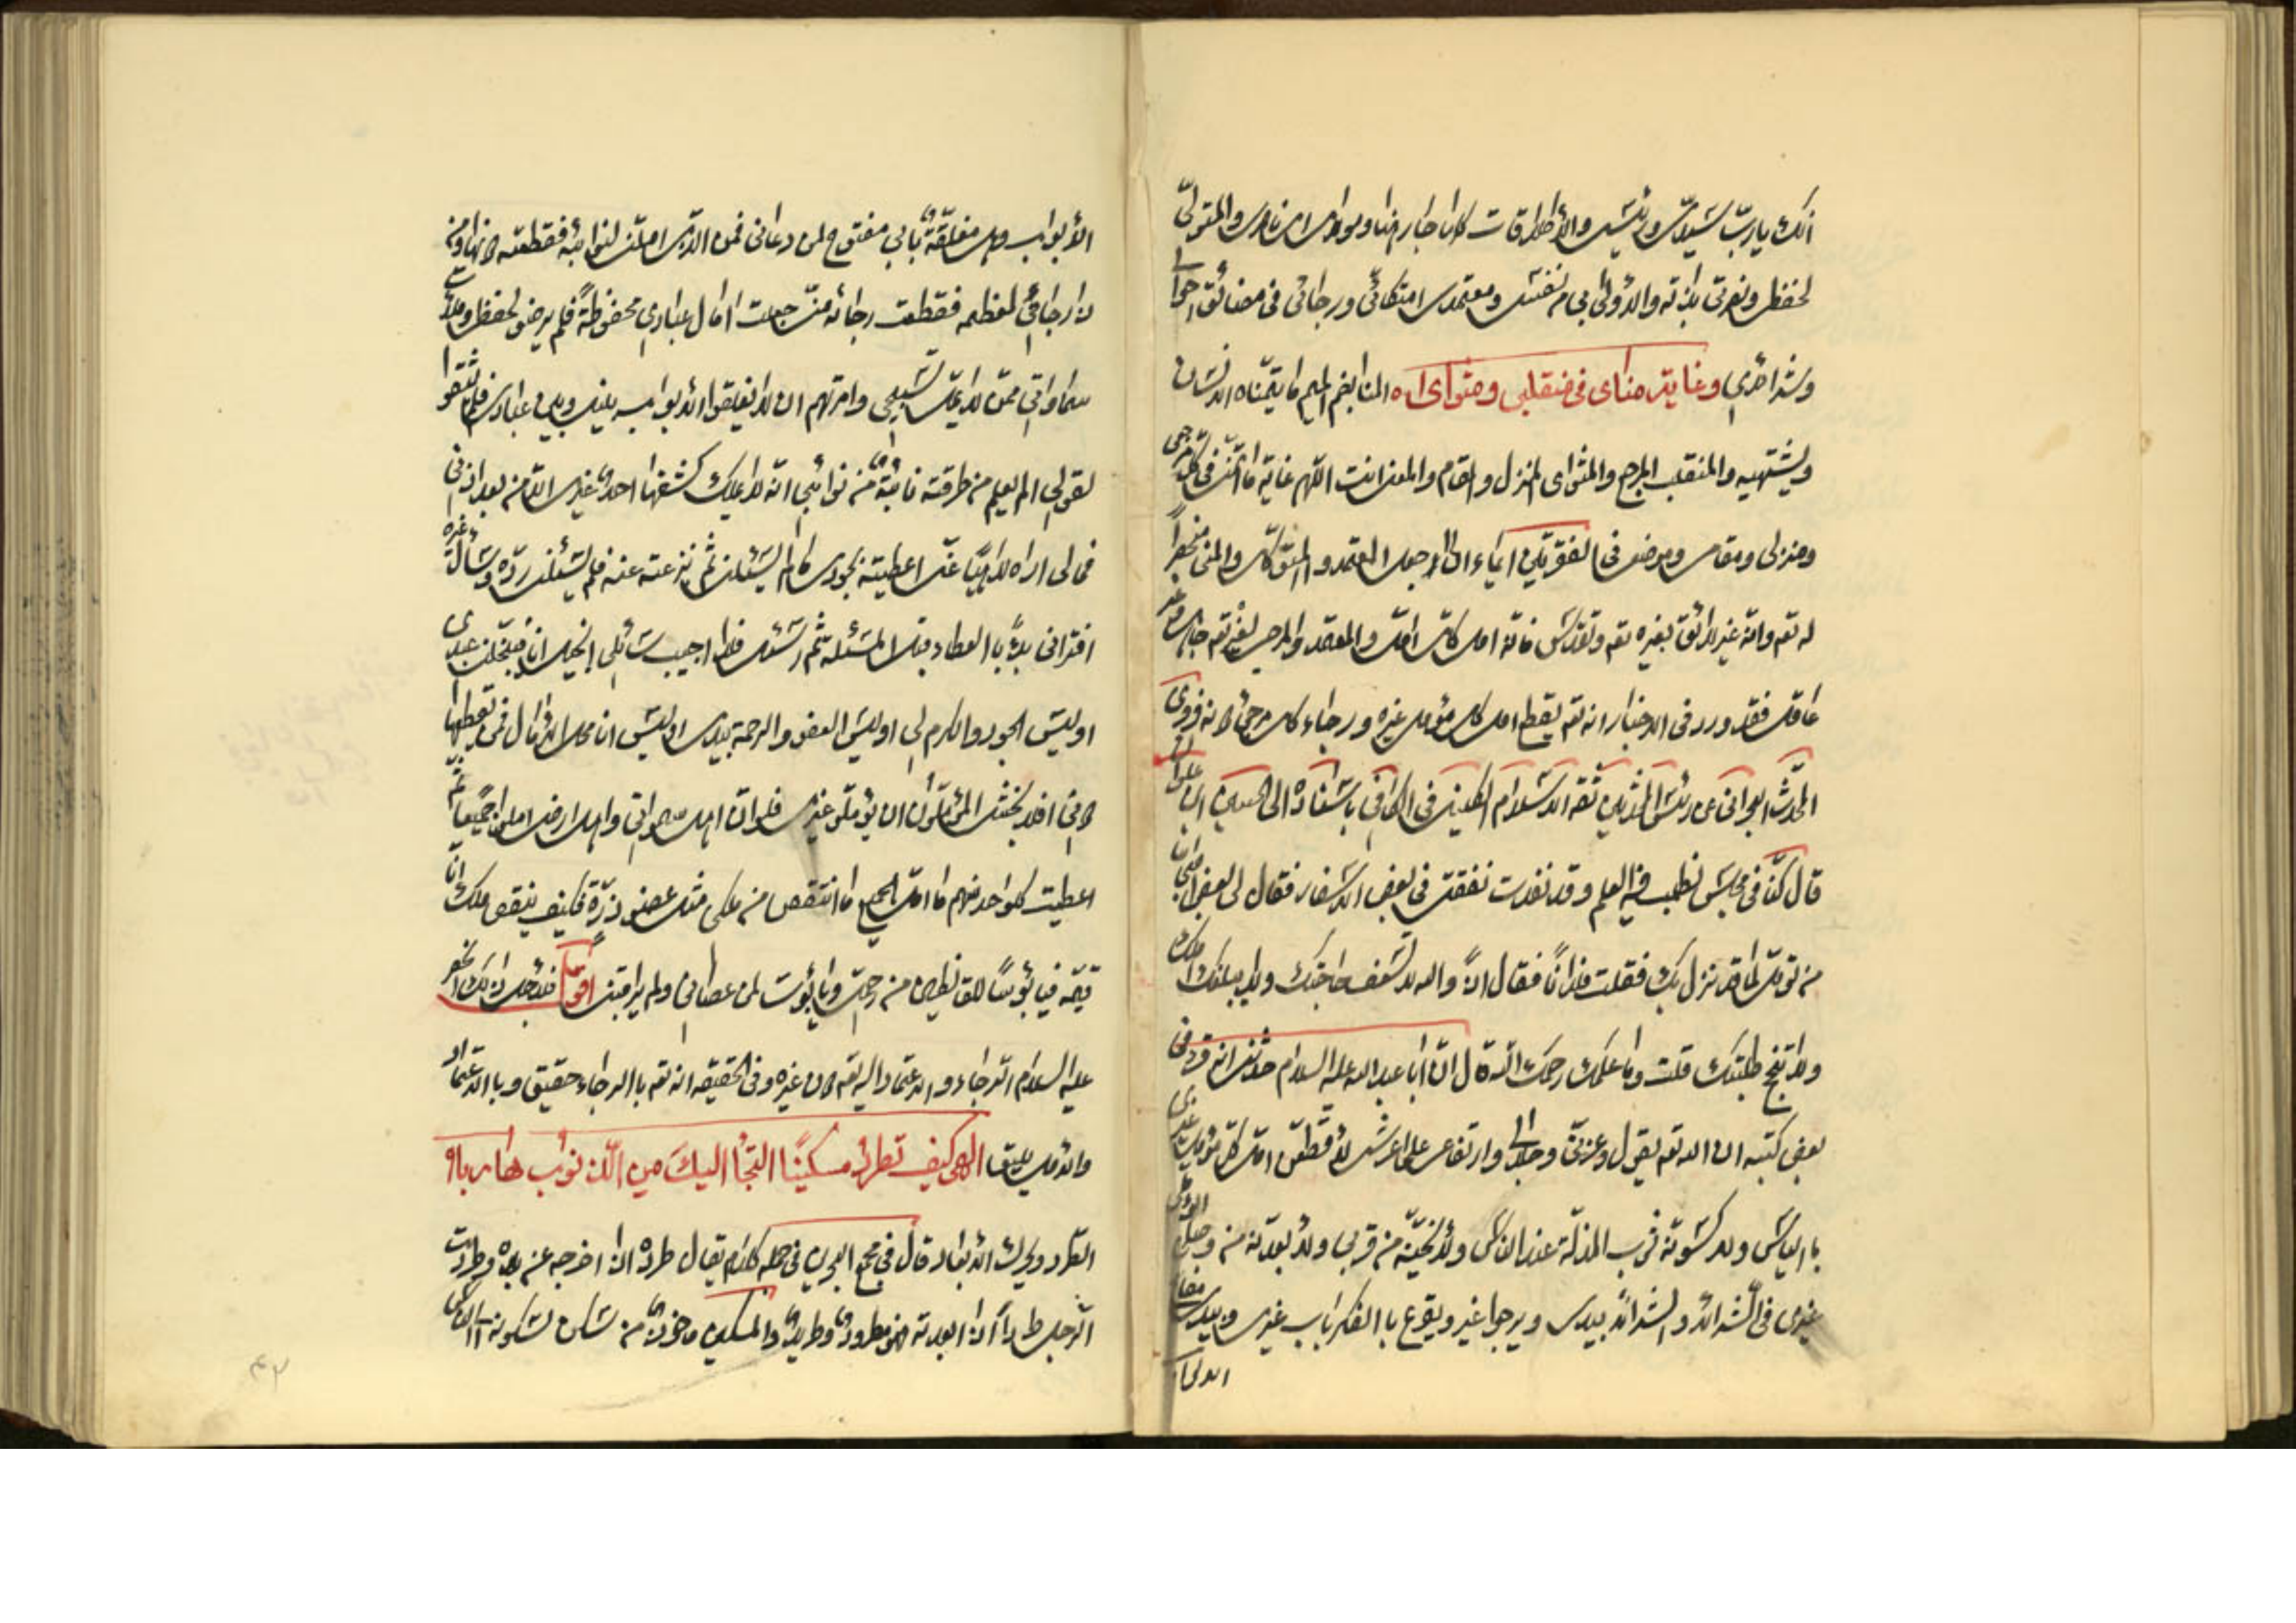 انك يا ربّ سيدى ورئيسى والأطلاقات كلها جار هنا ومولاى اى ناصرى والمتولى
لحفظى ونصرتى بل انه والاولى بى من نفسى ومعتمدى امتكائى ورجائى فى مضائق احوالى
وشدائدى وغاية مناى فى منقلبى ومثواى اه المنا بضم الميم ما يتمناه الانسان
ويشتهيه والمنقلب المرجع والمثوى المنزل والمقام والمعنى انت اللهم غاية ما اتمنى فى كل مرجعى
ومنزلى ومقامى وموضعى فى الفقرتين ايماء الى جعل المعتمد والمتكل والمنى منحصرا
له تعه وانه غير لائق بغيره تعه وتقدس فانه امل كل امل والمعتمد والمرجى لغيره تعه
عاقل فقد ورد فى الاخبار انه تعه يقطع امل كل مؤمل غيره ورجاء كل مرجى لانه فروى
المحدث البحرانى عن رئيس المحدثين ثقة الاسلام الكلينى فى الكافى باسناده الى الحسين ابن علوان
قال كنا فى مجلس نطلب فيه العلم وقد نفدت نفقتى فى بعض الاسفار فقال لى بعض اصحابنا
من تؤمل لما قد نزل بك فقلت فلانا فقال اذا والله لا تسعف حاجتك ولا يبلغك املك
ولا تنجح طلبتك قلت وما علمك رحمك الله قال ان ابا عبد الله عليه السلام حدثنى انه قرء فى
بعض كتبه ان الله تعه يقول وعزتى وجلالى وارتفاعى على عرشى لاقطعن امل كل مؤمل غيرى
با اليأس ولاكسونه ثوب المذلة عند الناس ولانحينه من قربى ولابعدنه من وصلى ايؤمل
غيرى فى الشدائد والشدائد بيدى ويرجوا غيرى ويقرع با الفكر باب غيرى وبيدى مفاتيح
الابواب
الأبواب وهى مغلقة بابى مفتوح لمن دعانى فمن الذى املنى لنوائبه فقطعته دونها ومن
ذا رجانى لعظيمة فقطعت رجائه منى جعلت امال عبادى محفوظة فلم يرضوا بحفظى وملأت
سماواتى ممن لا يمل تسبيحى وامرتهم ان لا يغلقوا الابواب بينى وبين عبادى فلم يثقوا
بقولى الم يعلم من طرقته نائبة من نوائبى انه لا يملك كشفها احد غيرى الا من بعد اذنى
فمالى اراه لاهيا عنى اعطيته بجودى ما لم يسئلنى ثم نزعته عنه فلم يسئلنى رده وسأل غيره
افترانى ابدء با العطاء قبل المسئلة ثم اسئل فلا اجيب سائلى ابخيل انا فيبخلنى عبدى
اوليس الجود والكرم لى اوليس العفو والرحمة بيدى اوليس انا محل الامال فمن يقطعها
دونى افلا يخشى المؤملون ان يؤملوا غيرى فلو ان اهل سمواتى واهل ارضى املوا جميعا ثم
اعطيت كل واحد منهم ما امل الجميع ما انتقص من ملكى مثل عضو ذرة فكيف ينقص ملك انا
قيمه فيا بؤسا للقانطين من رحمتى ويا بؤسا لمن عصانى ولم يراقبنى اقول
عليه السلام الرجاء والاعتماد اليه تعه دون غيره وفى الحقيقه انه تعه با الرجاء حقيق وبا الاعتماد
والامل يليق الهى كيف تطرد مسكينا التجأ اليك من الذنوب هاربا ه
الطرد ويحرك الابعاد قال فى مجمع البحرين فى جملة كلام يقال طرده اذا اخرجه عن بلده وطردت
الرجل طردا اذا ابعدته فهو مطرود وطريد والمسكين ماخوذ من سكن لسكونه الى الناس